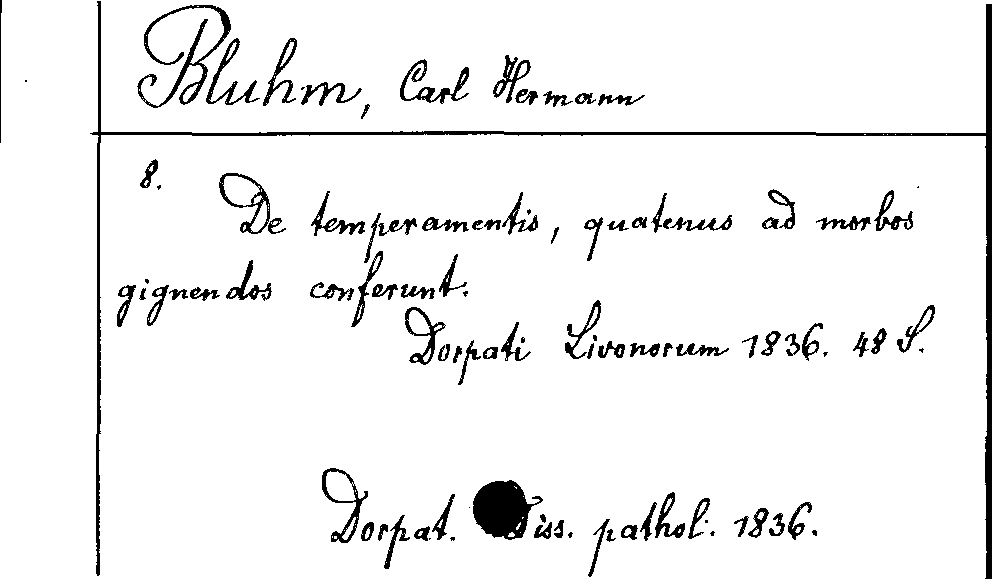 Bluhm, Carl Hermann
8.
De temperamentis, quatenus ad morbos
gignendos conferunt.
Dorpati Livonorum 1836. 48 S.
Dorpat. Diss. pathol. 1836.